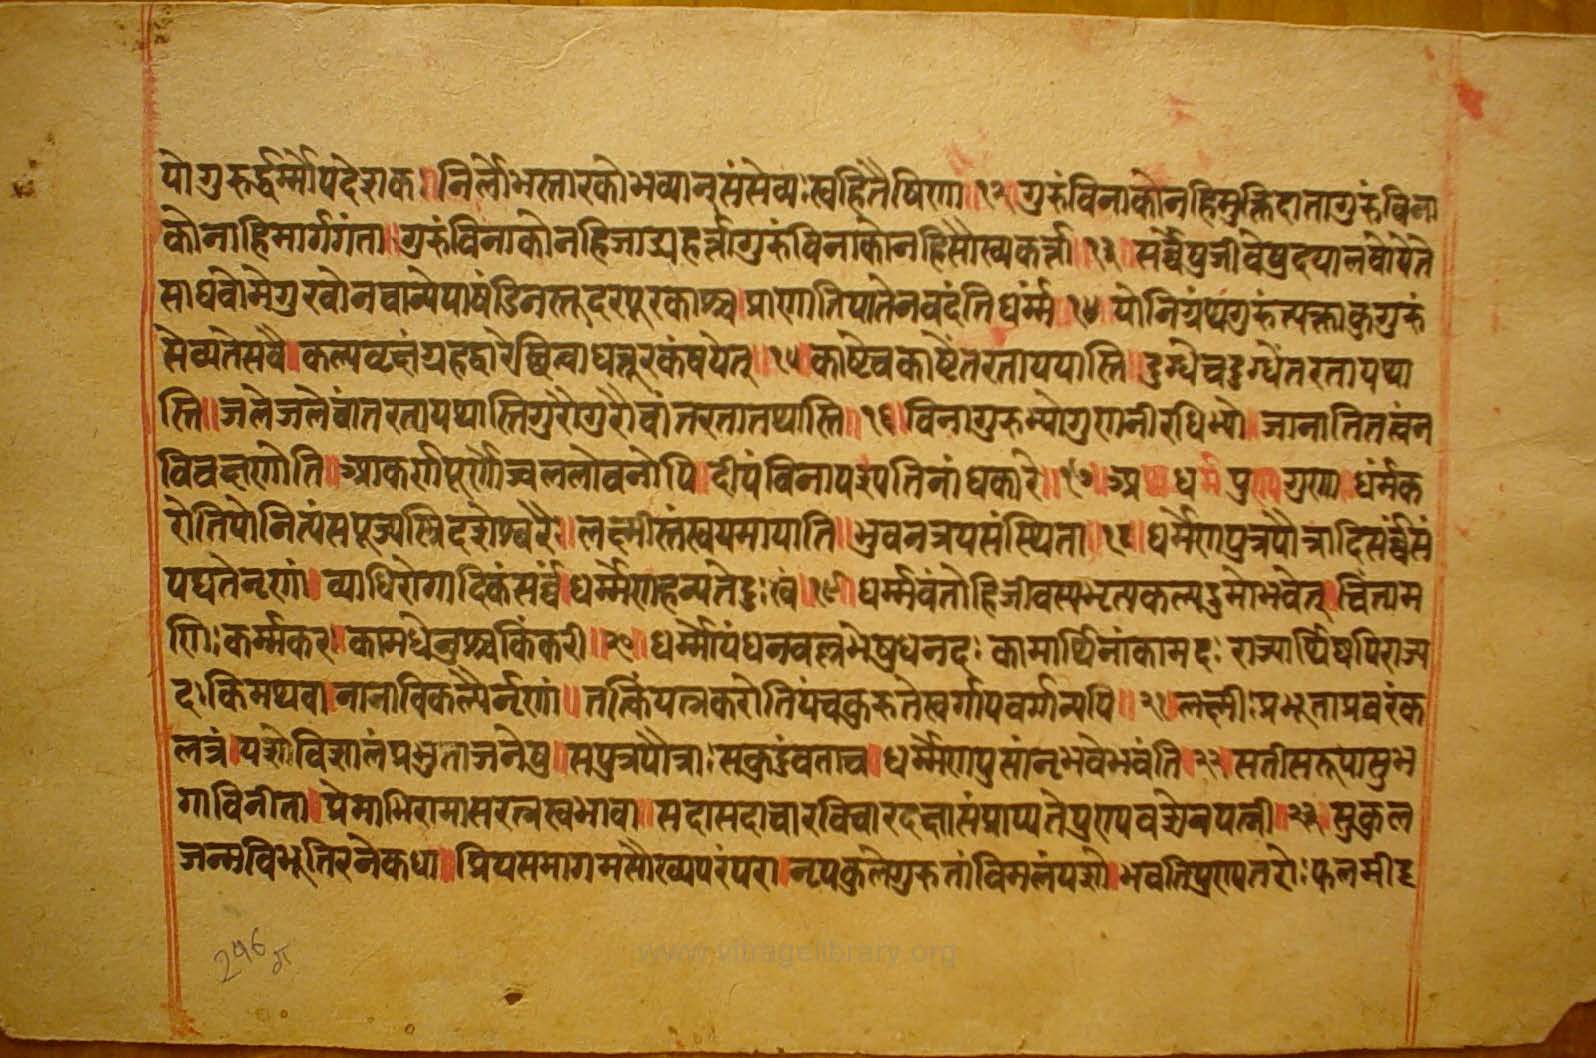 यो गुरुर्द्धर्म्मोपदेशकः । निर्लोभस्तारको भव्यान् सं सेव्यः स्वहितैषिणा ॥ १२ गुरुं विना को न हि मुक्तिदाता गुरुं विना
को ना हि मार्गगंता ॥ गुरुं विना को न हि जाड्यहर्त्ता गुरुं विना को न हि सौख्यकर्त्ता ॥ १३ ॥ सर्व्वेषु जीवेषु दयालवो ये ते
साधवो मे गुरवो न चान्ये पाषंडिनस्तूदरपूरकाश्च । प्राणातिपातेन वदंति धर्म्मं १४ यो निग्रंथगुरुं त्यक्त्वा कुगुरुं
सेव्यते स वै । कल्पवृक्षं गृहद्वारे छित्वा धत्तूरकं वपेत् ॥ १५ काष्टे च काष्टेंतरता यथास्ति ॥ दुग्धे च दुग्धेंतरता यथा
स्ति ॥ जले जले चांतरता यथास्ति गुरौ गुरौ चांतरता तथास्ति ॥ १६ विना गुरुभ्यो गुणनीरधिभ्यो । जानाति तत्वं न
विचक्षणोति ॥ आकर्णपूर्णोज्वललोचनोपि । दीपं विना पश्यति नांधकारे ॥ १७ ॥ अथ धर्म पुण्य गुण । धर्मं क
रोति यो नित्यं स पूज्यस्त्रिदशेश्वरैः ॥ लक्ष्मीस्तं स्वयमायाति ॥ भुवनत्रयसंस्थिता ॥ १८ ॥ धर्मेण पुत्रपौत्रादि सर्व्वं सं
पद्यते नृणां । व्याधिरोगादिकं सर्व्वं । धर्म्मेण हन्यते दुःखं ॥ १९ ॥ धर्म्मवंतो हि जीवस्य भृत्यकल्पद्रुमो भवेत् । चिंत्याम
णिः कर्म्मकरः । कामधेनुश्च किंकरी ॥ २० ॥ धर्म्मोयं धनवल्लभेषु धनदः कामार्थिनां कामदः राज्यार्थिष्वपि राज्य
दः किमथवा नानाविकल्पैर्नृणां ॥ तत्किं यत्न करोति यं च कुरुते स्वर्गापवर्गान्यपि ॥ २१ लक्ष्मीः प्रभूता प्रवरं क
लत्रं । यशो विशालं प्रभुता जनेषु ॥ सपुत्रपौत्राः सकुटुंबता च । धर्म्मेण पुंसां नृभवे भवंति ॥ २२ सती सरूपा सुभ
गा विनीता । प्रेमाभिरामा सरलस्वभावा ॥ सदा सदाचारविचारदक्षा संप्राप्यते पुण्यवशेन पत्नी ॥ २३ सुकुल
जन्म विभूतिरनेकधा ॥ प्रियसमागमसौख्यपरंपरा । नृपकुले गुरुता विमलं यशो । भवति पुण्यतरोः फलमीदृ
www.vitragelibrary.org